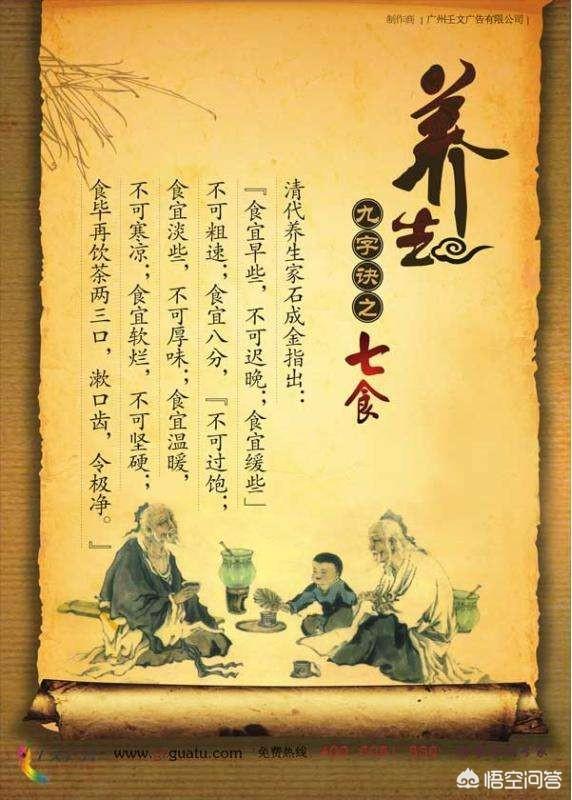 制作商 [ 广州壬文广告有限公司 ]
养生
九字诀之
七食
清代养生家石成金指出：
『食宜早些，不可迟晚；食宜缓些」
不可粗速；食宜八分，『不可过饱；
食宜淡些，不可厚味；食宜温暖，
不可寒凉；食宜软烂，不可坚硬；
食毕再饮茶两三口，漱口齿，令极净。』
免费热线
悟空问答